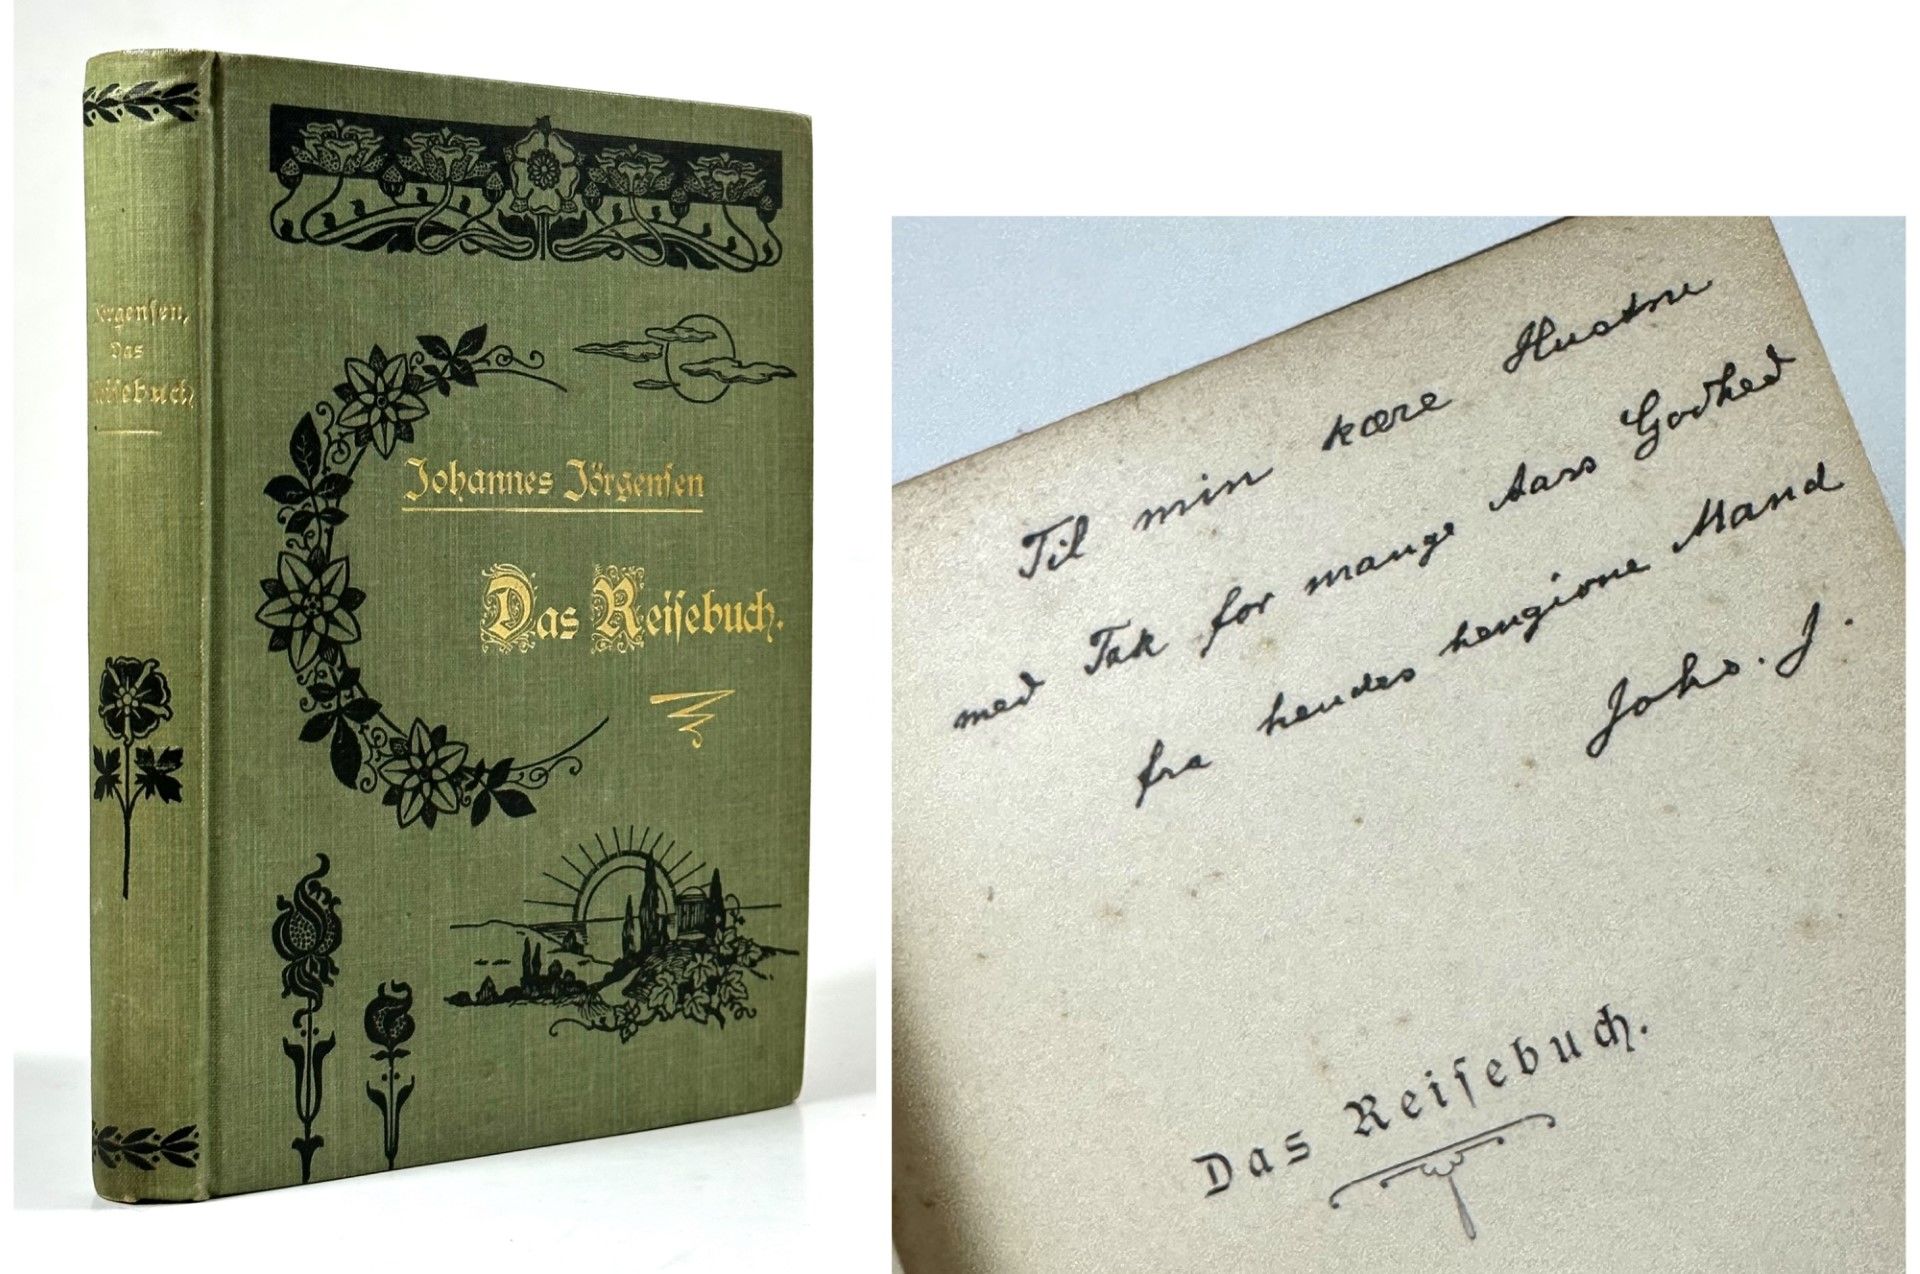 Jörgensen,
Das
Reisebuch
Johannes Jörgensen
Das Reisebuch.
Til min kære Hustru
med Tak for mange Aars Godhed
fra hendes hengivne Mand
Johs. J.
Das Reisebuch.